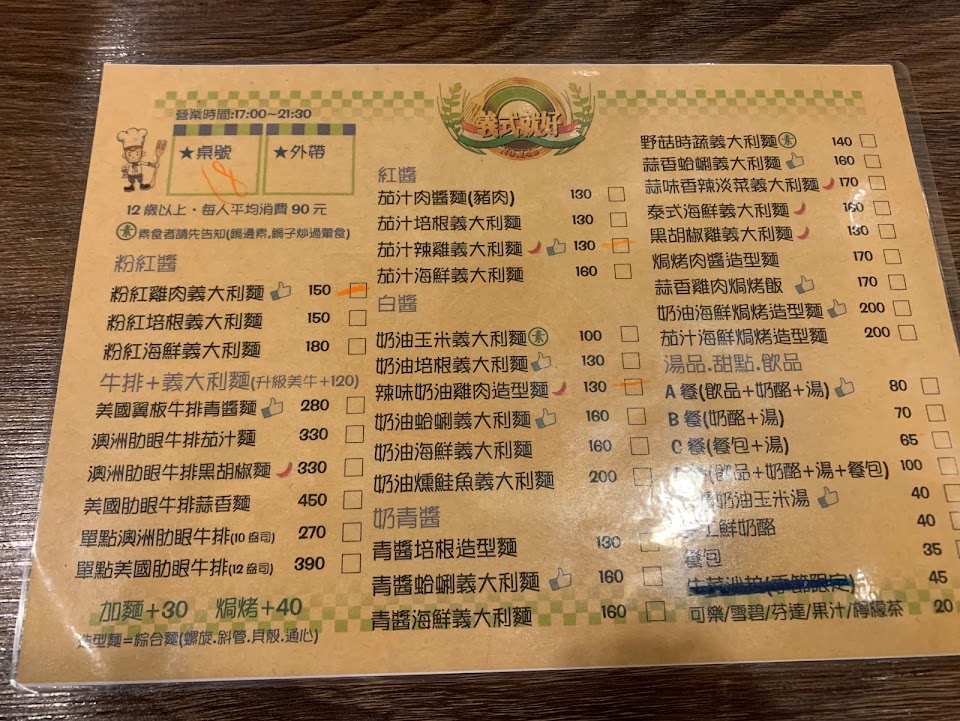 營業時間:17:00~21:30
★桌號
★外帶
18
12歲以上・每人平均消費 90 元
素 素食者請先告知(鍋邊素,鍋子炒過葷食)
粉紅醬
粉紅雞肉義大利麵 150
粉紅培根義大利麵 150
粉紅海鮮義大利麵 180
牛排+義大利麵(升級美牛+120)
美國翼板牛排青醬麵 280
澳洲肋眼牛排茄汁麵 330
澳洲肋眼牛排黑胡椒麵 330
美國肋眼牛排蒜香麵 450
單點澳洲肋眼牛排(10盎司) 270
單點美國肋眼牛排(12盎司) 390
加麵+30 焗烤+40
造型麵=綜合麵(螺旋.斜管.貝殼.通心)
義式就好
紅醬
茄汁肉醬麵(豬肉) 130
茄汁培根義大利麵 130
茄汁辣雞義大利麵 130
茄汁海鮮義大利麵 160
白醬
奶油玉米義大利麵 素 100
奶油培根義大利麵 130
辣味奶油雞肉造型麵 130
奶油蛤蜊義大利麵 160
奶油海鮮義大利麵 160
奶油燻鮭魚義大利麵 200
奶青醬
青醬培根造型麵 130
青醬蛤蜊義大利麵 160
青醬海鮮義大利麵 160
野菇時蔬義大利麵 素 140
蒜香蛤蜊義大利麵 160
蒜味香辣淡菜義大利麵 170
泰式海鮮義大利麵 160
黑胡椒雞義大利麵 130
焗烤肉醬造型麵 170
蒜香雞肉焗烤飯 170
奶油海鮮焗烤造型麵 200
茄汁海鮮焗烤造型麵 200
湯品.甜點.飲品
A 餐(飲品+奶酪+湯) 80
B 餐(奶酪+湯) 70
C 餐(餐包+湯) 65
(飲品+奶酪+湯+餐包) 100
奶油玉米湯 40
工鮮奶酪 40
餐包 35
45
可樂/雪碧/芬達/果汁/檸檬茶 20